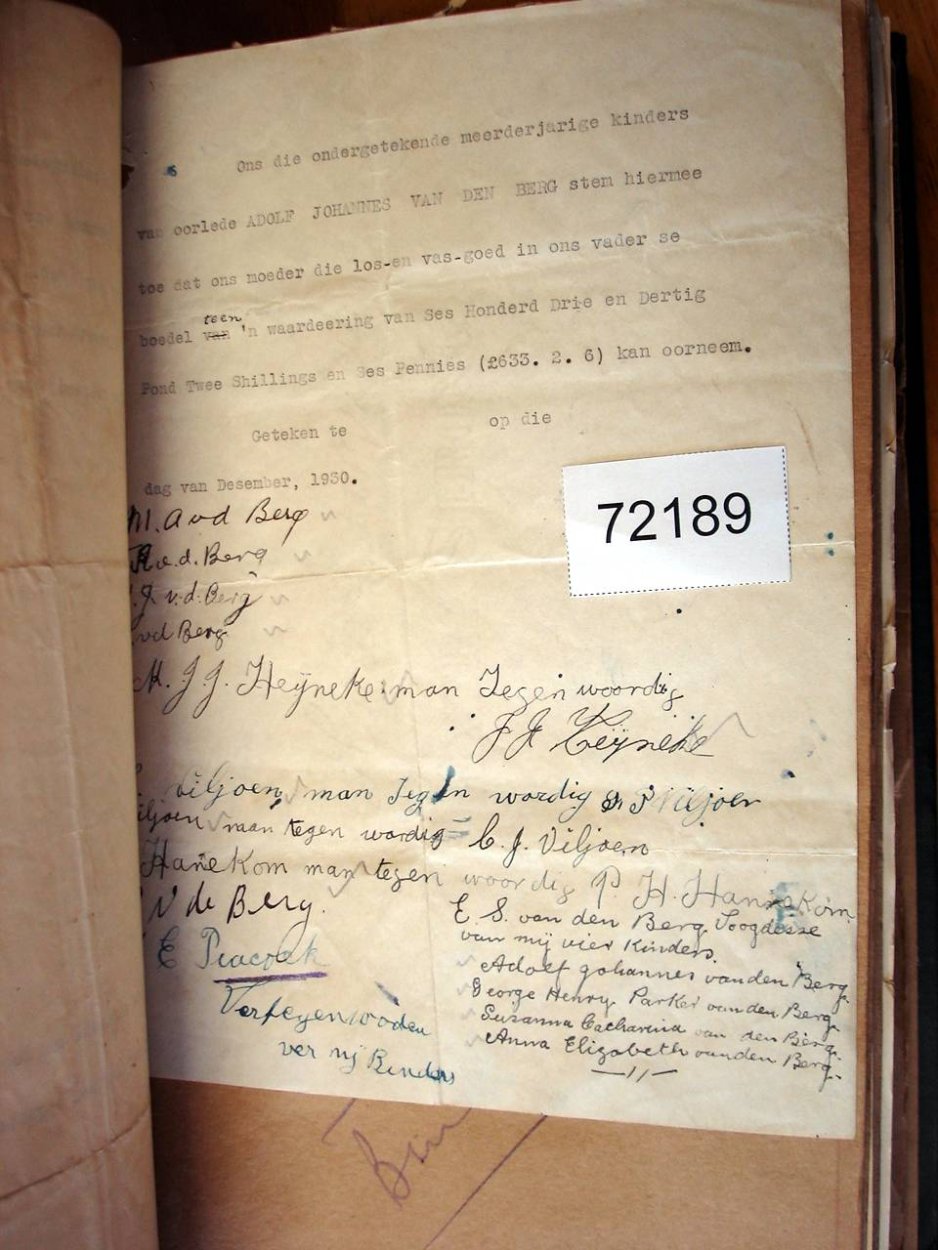 Ons die ondergetekende meerderjarige kinders
van oorlede ADOLF JOHANNES VAN DEN BERG stem hiermee
toe dat ons moeder die los-en vas-goed in ons vader se
teen
boedel van 'n waardeering van Ses Honderd Drie en Dertig
Pond Twee Shillings en Ses Pennies (£633. 2. 6) kan oorneem.
Geteken te op die
dag van Desember, 1930.
72189
M. A vd Berg
v.d. Berg
J v.d. Berg
vd Berg
M. J J. Heyneke man Tegen woordig
J J Heyneke
Viljoen man Tegen wordig Viljoen
iljoen man tegen wordig = C. J. Viljoen
Hanekom man tegen woordig P H. Hannekom
V de Berg.
E. S. van den Berg. Voogdesse
van mij vier Kinders.
E Peacock
Adolf Johannes van den Berg.
George Henry Parker van den Berg.
Suzanna Catharina van den Berg.
Anna Elizabeth van den Berg.
ver mij Kinders